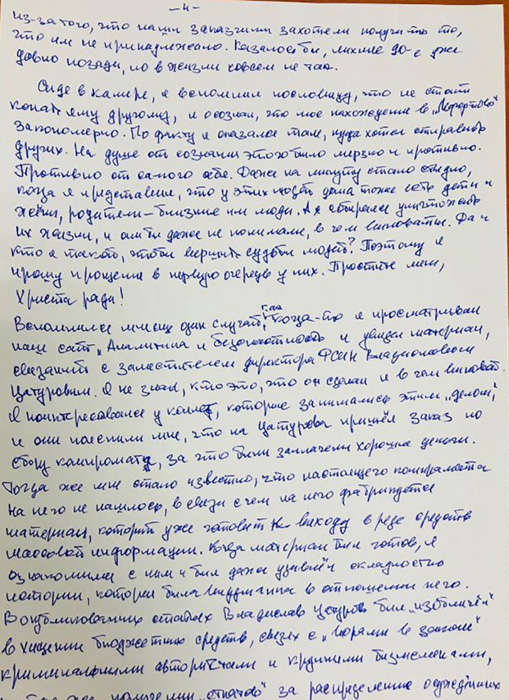 -4-
из-за того, что наши заказчики захотели получить то,
что им не принадлежало. Казалось бы, лихие 90-е уже
давно позади, но в жизни совсем не так.
Сидя в камере, я вспомнил пословицу, что не стоит
копать яму другому, и осознал, что мое нахождение в „Лефортово"
закономерно. По факту я оказался там, куда хотел отправить
других. На душе от сознания этого было мерзко и противно.
Противно от самого себя. Даже на минуту стало стыдно,
когда я представил, что у этих людей дома тоже есть дети и
жёны, родители – близкие им люди. А я старался уничтожить
их жизни, и они даже не понимали, в чем виноваты. Да и
кто я такой, чтобы вершить судьбы людей? Поэтому я
прошу прощения в первую очередь у них. Простите меня,
Христа ради!
Вспомнился мне их один случай, когда-то я просматривал
наш сайт „Аналитика и безопасность" и увидел материал,
связанный с заместителем директора ФСИН Владиславом
Цатуровым. Я не знал, кто это, что он сделал и в чем виноват.
Я поинтересовался у коллег, которые занимались этим „делом",
и они пояснили мне, что на Цатурова пришёл заказ по
сбору компромата, за что были заплачены хорошие деньги.
Тогда же мне стало известно, что настоящего компромата
на него не нашлось, в связи с чем на него фабрикуется
материал, который уже готовят к выходу в ряде средств
массовой информации. Когда материал был готов, я
ознакомился с ним и был даже удивлён складностью
истории, которая была выдумана в отношении него.
В опубликованных статьях Владислав Цатуров был „изобличён"
в хищении бюджетных средств, связях с „ворами в законе"
криминальными авторитетами и крупными бизнесменами,
получении „откатов" за распределение осуждённых